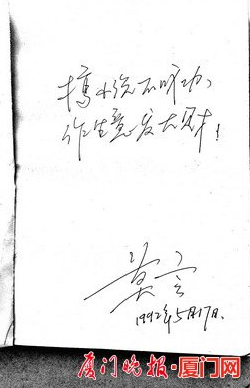 搞小说不功，
作生意发大财！
莫言
1992年5月17日.
厦门晚报·厦门网